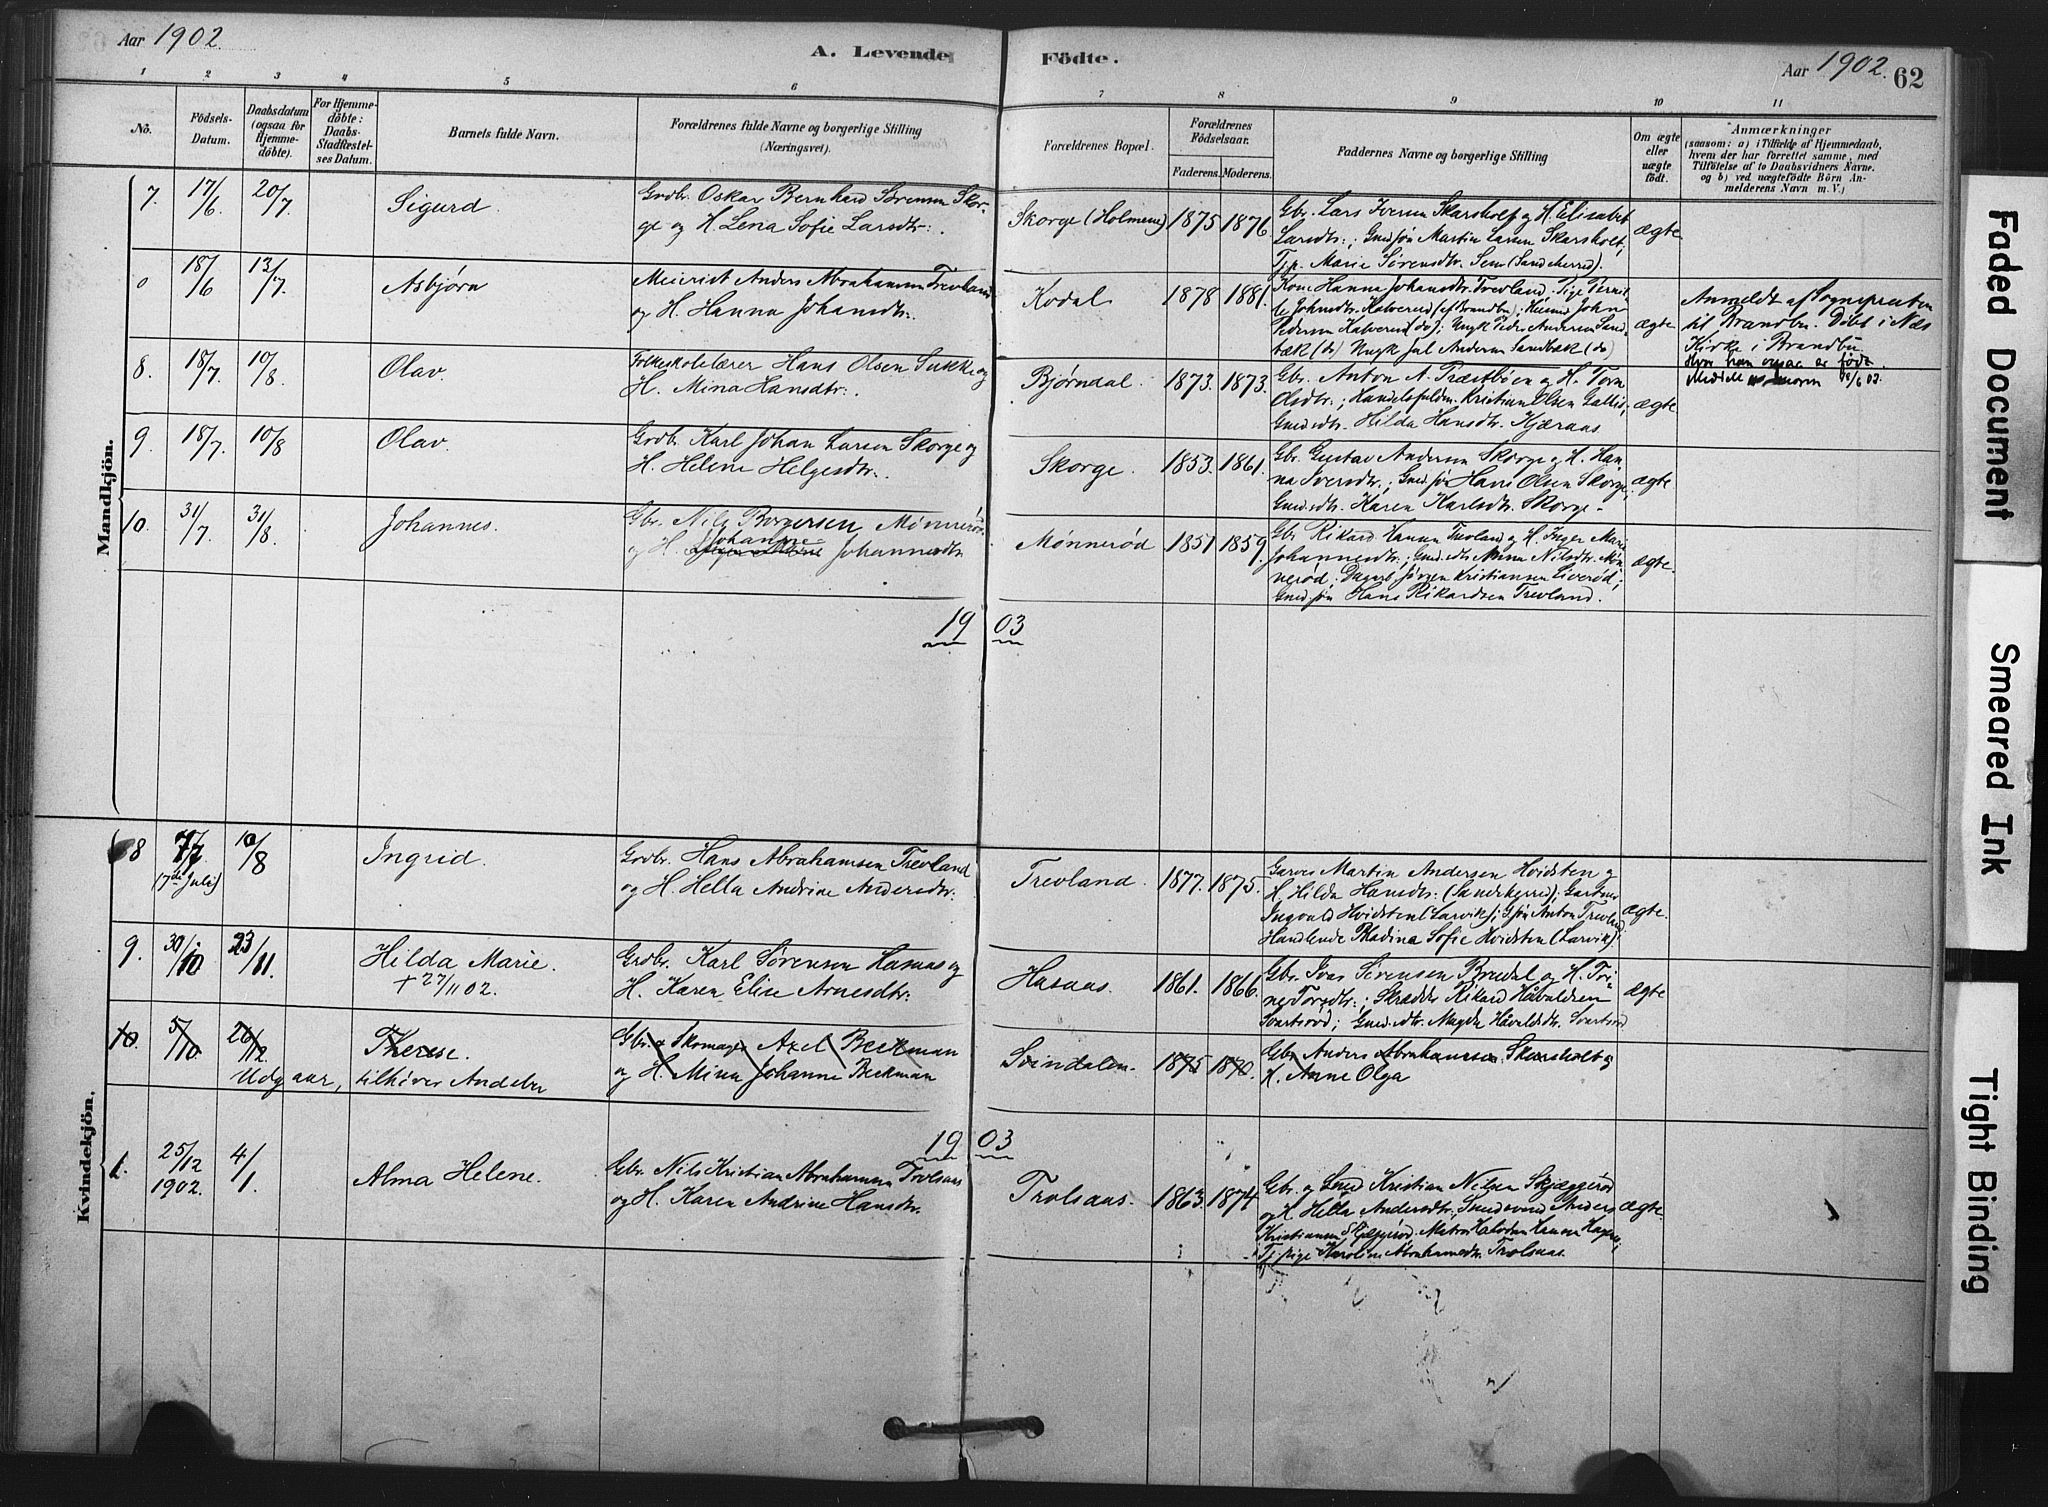 Aar 1902.
A. Levende Födte.
Aar 1902. 62
1 2 3 4 5 6 7 8 9 10 11
No.
Födsels-
Datum.
Daabsdatum
(ogsaa for
Hjemme-
döbte).
For Hjemme-
döbte:
Daabs-
Stadfæstel-
ses Datum.
Barnets fulde Navn.
Forældrenes fulde Navne og borgerlige Stilling
(Næringsvei).
Forældrenes Bopæl.
Forældrenes
Födselsaar.
Faderens. Moderens.
Faddernes Navne og borgerlige Stilling
Om ægte
eller
uægte
födt.
Anmærkninger
(saasom: a) i Tilfælde af Hjemmedaab,
hvem der har forrettet samme, med
Tilföielse af to Daabsvidners Navne,
og b) ved uægtefödte Börn An-
melderens Navn m. V.)
Mandkjön.
7. 17/6 20/7 Sigurd.
Grdbr. Oskar Bernhard Sørensen Skor-
ge og H. Lena Sofie Larsdtr.
Skorge (Holmene) 1875 1876
Gbr. Lars Iversen Skarsholt og H. Elisabet
Larsdtr.; Gmdsøn Martin Larsen Skarsholt;
Tjp. Marie Sørensdtr. Sem (Sandeherred).
ægte
0 18/6 13/7 Asbjørn
Meierist Anders Abrahamsen Trevland
og H. Hanna Johansdtr.
Kodal 1878 1881.
Kone Hanna Johansdtr. Trevland. Pige Pernil-
le Johnsdtr. Kalverud (af Brandbu); Ktmand Johan
Pedersen Kalverud (do); Ungk Peder Andersen Sand-
bæk (do) Ungk Jul Andersen Sandbæk (do)
ægte
Anmeldt af Sognepresten
til Brandbu. Døbt i Næs
Kirke i Brandbu
hvor han ogsaa er født.
8. 18/7. 10/8. Olav.
Folkeskolelærer Hans Olsen Sukke og
H. Mina Hansdtr.
Bjørndal. 1873. 1873.
Gbr. Anton A. Præstbøen og H. Torn
Olsdtr.; Handelsfuldm. Kristian Olsen Gallis;
Gmdsdtr. Hilda Hansdtr. Kjæraas
ægte
9 18/7. 10/8 Olav
Grdbr. Karl Johan Larsen Skorge og
H. Helene Helgesdtr.
Skorge. 1853. 1861.
Gbr. Gustav Andersen Skorge og H. Han-
na Iversdtr.; Gmdsøn Hans Olsen Skorge;
Gmdsdtr. Karen Karlsdtr. Skorge.
ægte
10. 31/7. 31/8. Johannes.
Gbr. Nils Borgersen Mønnerød
Johanne
og H. Johannesdtr
Mønnerød 1851 1859.
Gbr Rikard Hansen Trevland og H. Inger Marie
Johannesdtr.; Gmdsdtr Anna Nilsdtr. Møn-
nerød; Dagarb. Jørgen Kristiansen Liverød;
Gmdsøn Hans Rikardsen Trevland.
ægte.
19 03
Kvindekjön.
8 7/7 10/8 Ingrid.
(7de Juli)
Grdbr. Hans Abrahamsen Trevland
og H. Hella Andrine Andersdtr.
Trevland. 1877. 1875.
Garver Martin Andersen Hvidsten og
H. Hilda Hansdtr. (Sandeherred); Gartner
Ingvald Hvidsten (Larvik); Gsøn Anton Trevland
Handlende Bladina Sofie Hvidsten (Larvik).
ægte.
9. 30/10 23/11. Hilda Marie.
+ 27/11 02.
Grdbr. Karl Sørensen Hasaas og
H. Karen Elise Arnesdtr.
Hasaas. 1861. 1866.
Gbr. Ivar Sørensen Bredal og H. Tri-
ne Torsdtr.; Skrædder Rikard Håvaldsen
Svartsrød; Gmdsdtr. Magda Håvaldsdtr. Svartsrød
ægte
10. 5/10 26/12 Therese.
Udgaar, tilhører Andebu
Gbr. & Skomager Axel Beckman
og H. Mina Johanne Beckman
Svindalen. 1875 1870.
Gbr. Anders Abrahamsen Skarsholt og
H. Anne Olga
19 03
1. 25/12 1902. 4/1. Alma Helene.
Gbr. Nils Kristian Abrahamsen Trolsaas
og H. Karen Andrine Hansdtr.
Trolsaas. 1863. 1874
Gbr. og Smed Kristian Nilsen Skjæggerød
og H Hella Andersdtr; Smedsvend Anders
Kristiansen Skjæggerød. Matros Halvdan Hansen
Tj.pige Karoline Abrahamsdtr. Trolsaas
ægte.
Faded Document
Smeared Ink
Tight Binding